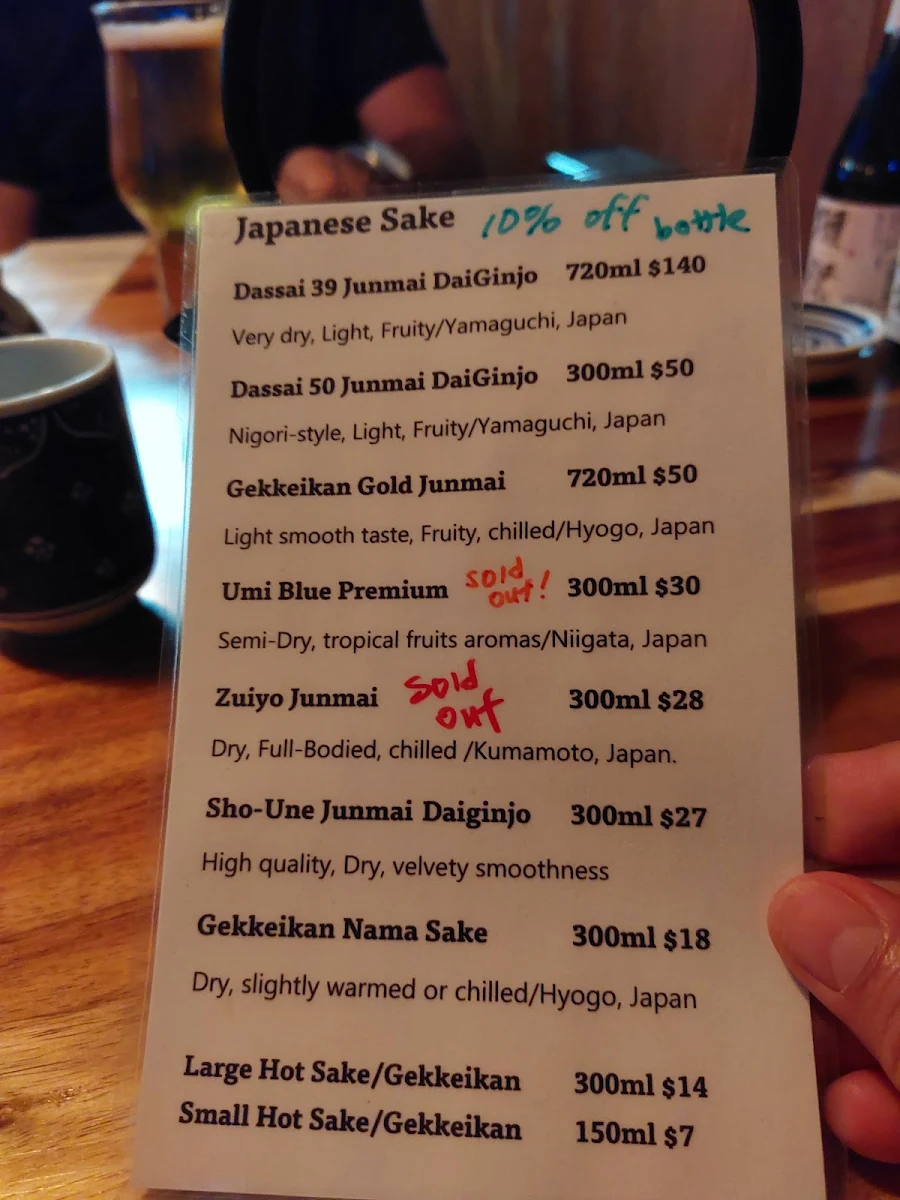 Japanese Sake 10% off bottle
Dassai 39 Junmai DaiGinjo 720ml $140
Very dry, Light, Fruity/Yamaguchi, Japan
Dassai 50 Junmai DaiGinjo 300ml $50
Nigori-style, Light, Fruity/Yamaguchi, Japan
Gekkeikan Gold Junmai 720ml $50
Light smooth taste, Fruity, chilled/Hyogo, Japan
Umi Blue Premium sold out! 300ml $30
Semi-Dry, tropical fruits aromas/Niigata, Japan
Zuiyo Junmai Sold out 300ml $28
Dry, Full-Bodied, chilled /Kumamoto, Japan.
Sho-Une Junmai Daiginjo 300ml $27
High quality, Dry, velvety smoothness
Gekkeikan Nama Sake 300ml $18
Dry, slightly warmed or chilled/Hyogo, Japan
Large Hot Sake/Gekkeikan 300ml $14
Small Hot Sake/Gekkeikan 150ml $7